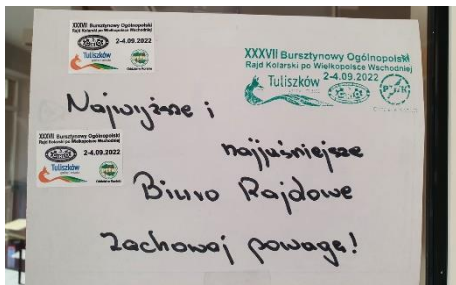 XXXVII Bursztynowy Ogólnopolski
Rajd Kolarski po Wielkopolsce Wschodniej
2-4.09.2022
Tuliszków
XXXVII Bursztynowy Ogólnopolski
Rajd Kolarski po Wielkopolsce Wschodniej
2-4.09.2022
Tuliszków
Najwyższe i
najjaśniejsze
XXXVII Bursztynowy Ogólnopolski
Rajd Kolarski po Wielkopolsce Wschodniej
2-4.09.2022
Tuliszków
Biuro Rajdowe
zachowaj powagę!